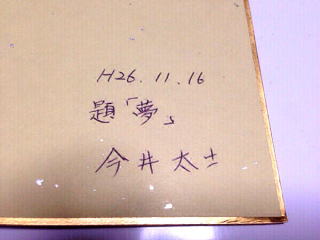 H26.11.16
題「夢」
今井太士